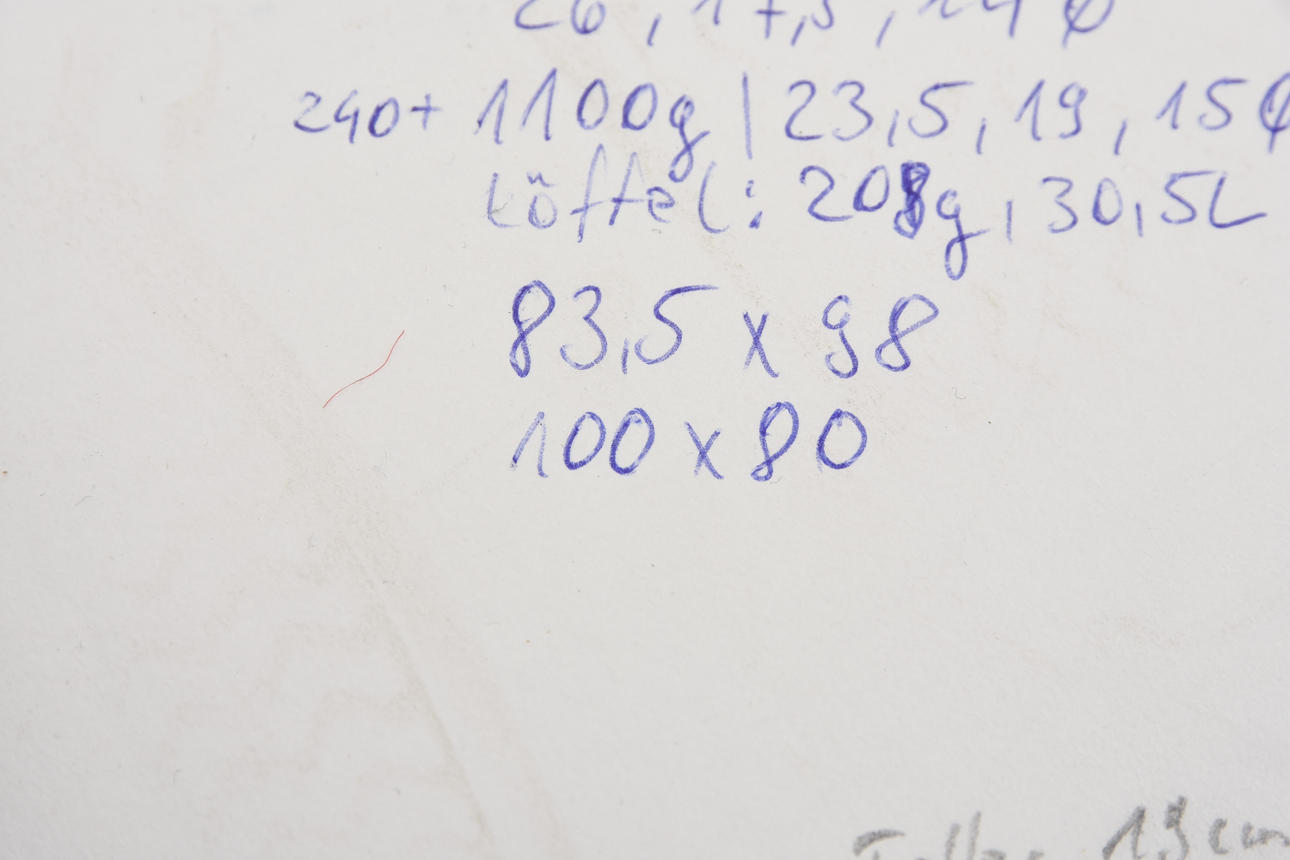 26, 17,5, 14 Ø
240+ 1100g | 23,5, 19, 15 Ø
Löffel: 208g, 30,5L
83,5 x 98
100 x 80
Teller 19cm